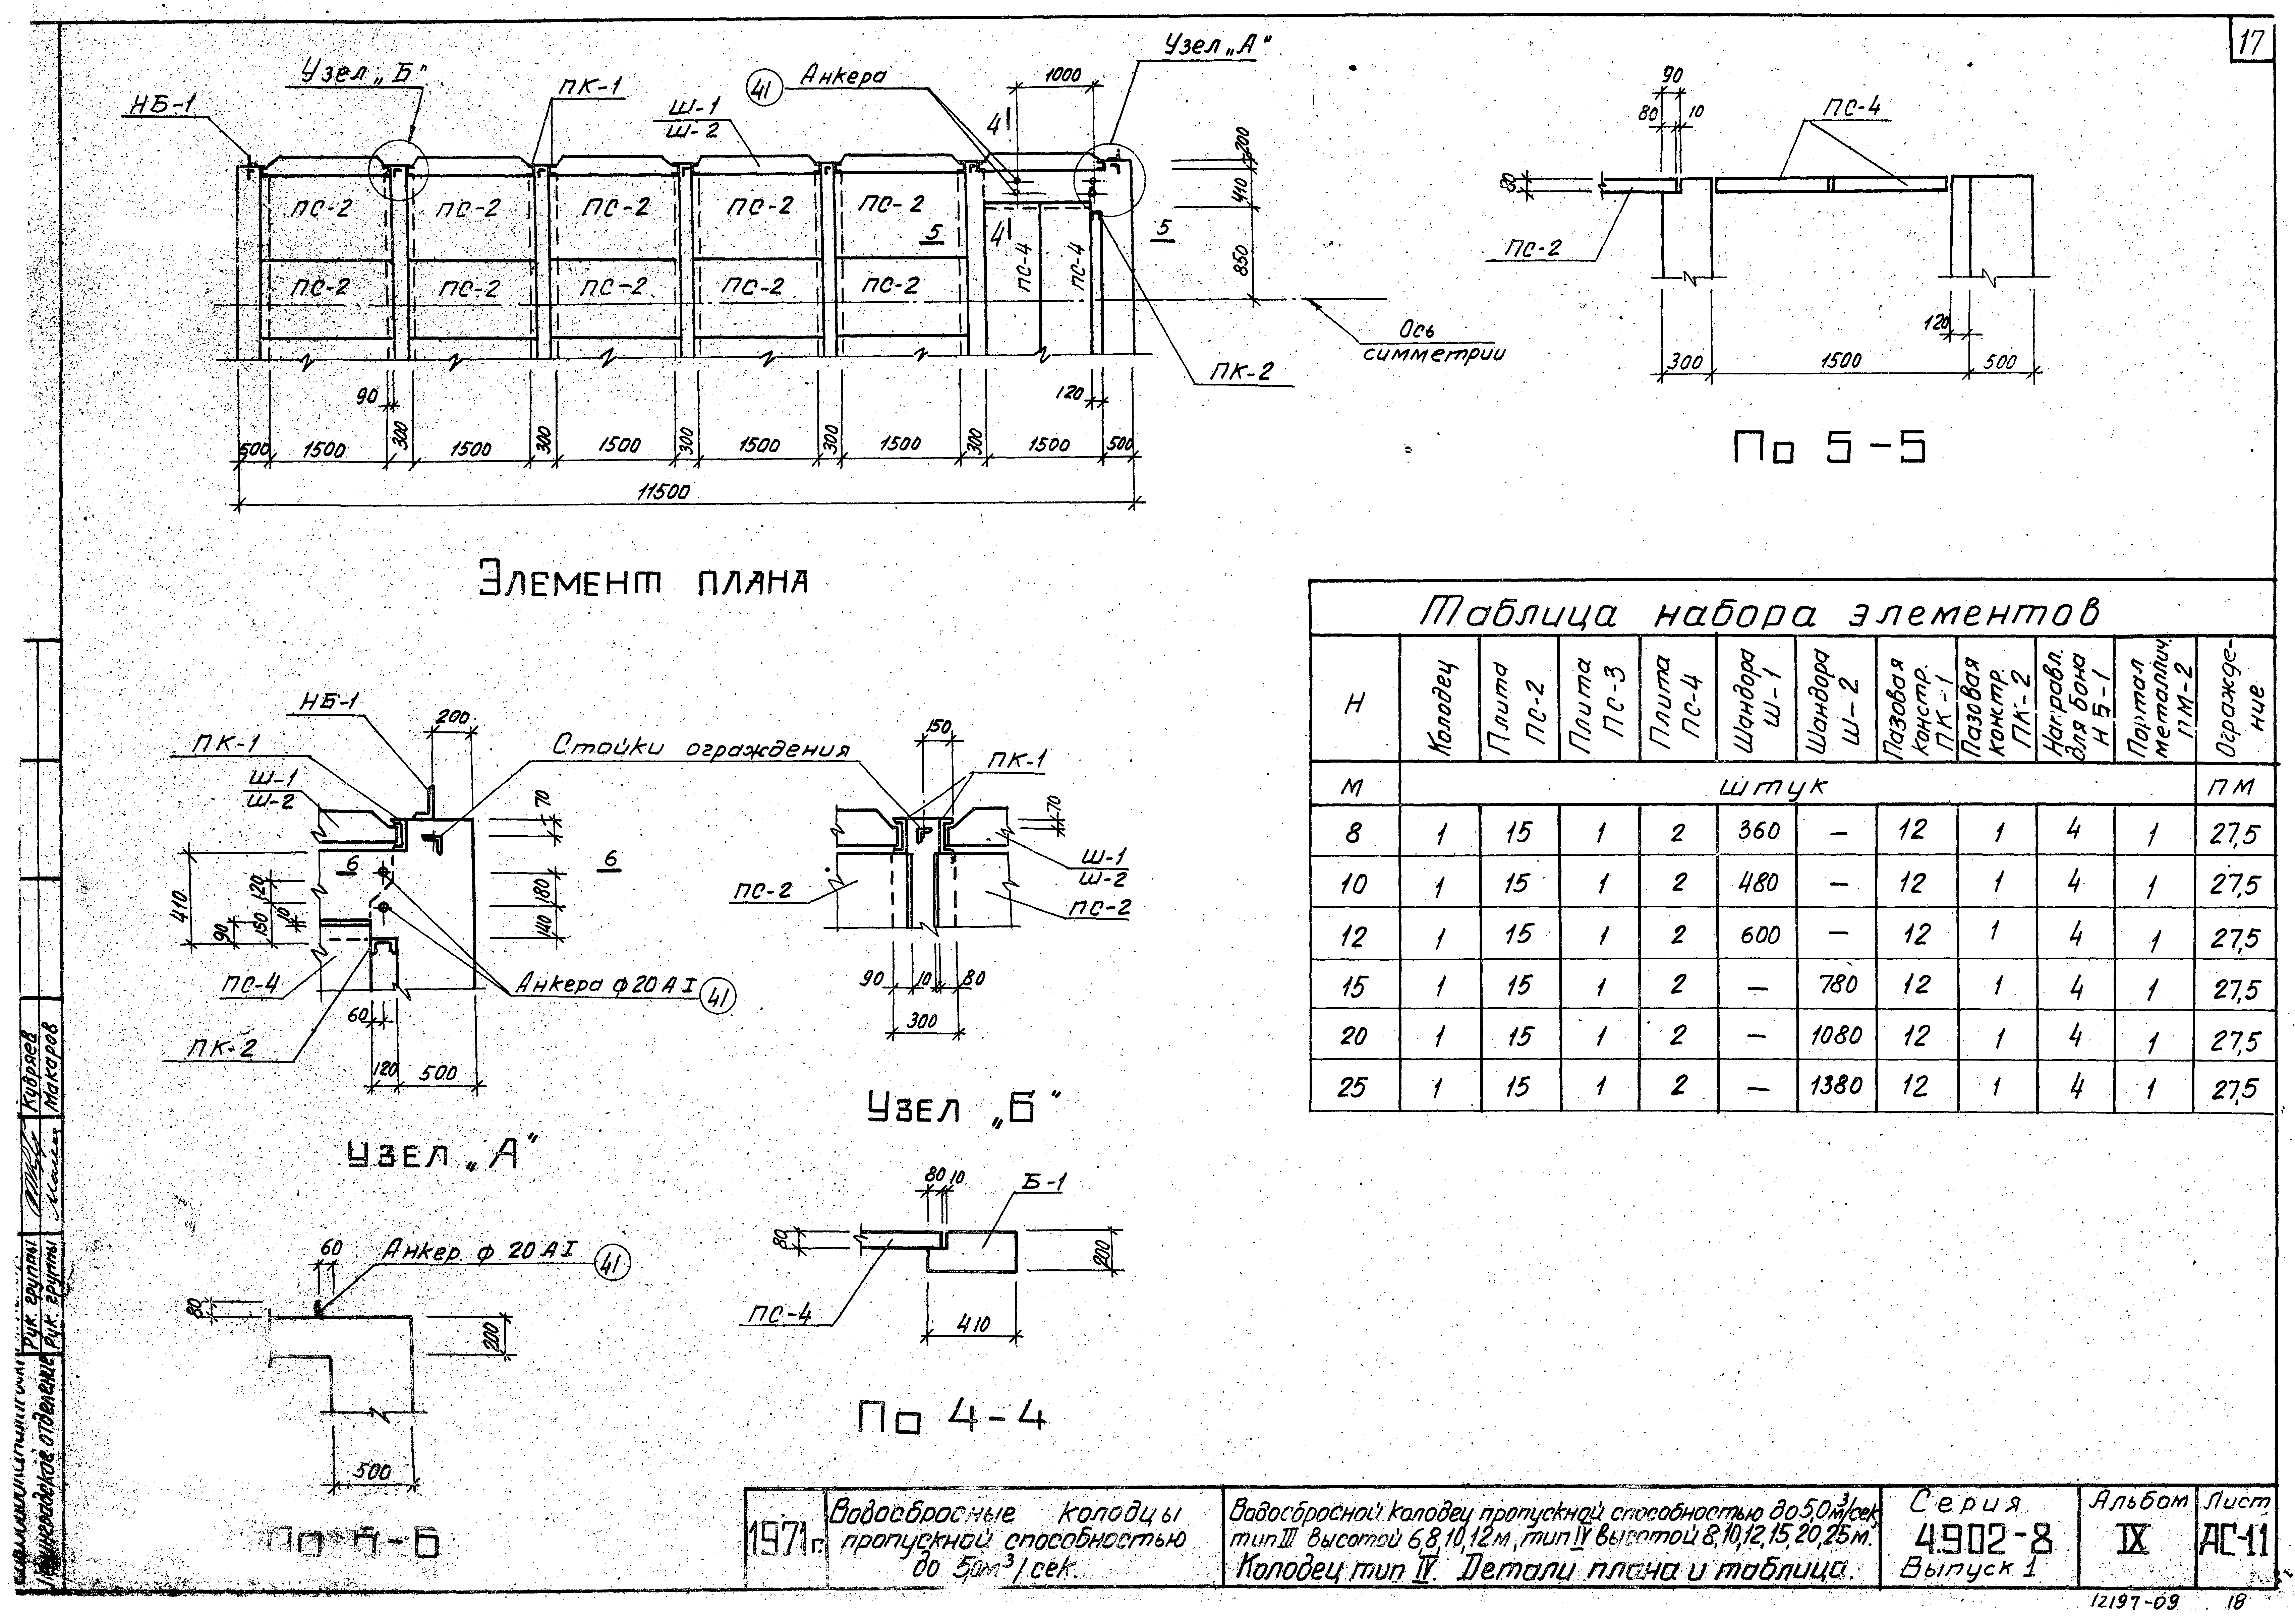 17
Узел „Б"
НБ-1
ПК-1
Ш-1
Ш-2
41 Анкера
1000
Узел „А"
4 4
200
410
850
ПС-2 ПС-2 ПС-2 ПС-2 ПС-2
5 5
ПС-2 ПС-2 ПС-2 ПС-2 ПС-2
ПС-4 ПС-4
Ось
симметрии
ПК-2
90 120
500 1500 300 1500 300 1500 300 1500 300 1500 300 1500 500
11500
Элемент плана
90
80 10
ПС-4
80
ПС-2
120
300 1500 500
По 5-5
НБ-1
200
ПК-1
Ш-1
Ш-2
Стойки ограждения
70
6 6
410
120
150
10
90
180
140
ПС-4
Анкера ф20АI 41
60
ПК-2
120 500
Узел „А"
150
ПК-1
70
Ш-1
Ш-2
ПС-2 ПС-2
90 10 80
300
Узел „Б"
60
Анкер ф 20АI 41
80
200
500
По 6-6
80 10
Б-1
80
200
ПС-4
410
По 4-4
Таблица набора элементов
Н | Колодец | Плита ПС-2 | Плита ПС-3 | Плита ПС-4 | Шандора Ш-1 | Шандора Ш-2 | Пазовая констр. ПК-1 | Пазовая констр. ПК-2 | Направл. для бона НБ-1 | Портал металлич. ПМ-2 | Огражде-ние
М | штук | ПМ
8 1 15 1 2 360 — 12 1 4 1 27,5
10 1 15 1 2 480 — 12 1 4 1 27,5
12 1 15 1 2 600 — 12 1 4 1 27,5
15 1 15 1 2 — 780 12 1 4 1 27,5
20 1 15 1 2 — 1080 12 1 4 1 27,5
25 1 15 1 2 — 1380 12 1 4 1 27,5
Кудряев
Макаров
Рук. группы
Рук. группы
Ленинградское отделение
1971г.
Водосбросные колодцы
пропускной способностью
до 5,0м³/сек.
Водосбросной колодец пропускной способностью до 5,0м³/сек
тип III высотой 6,8,10,12м, тип IV высотой 8,10,12,15,20,25м.
Колодец тип IV. Детали плана и таблица.
Серия
4.902-8
Выпуск 1
Альбом
IX
Лист
АС-11
12197-09 18